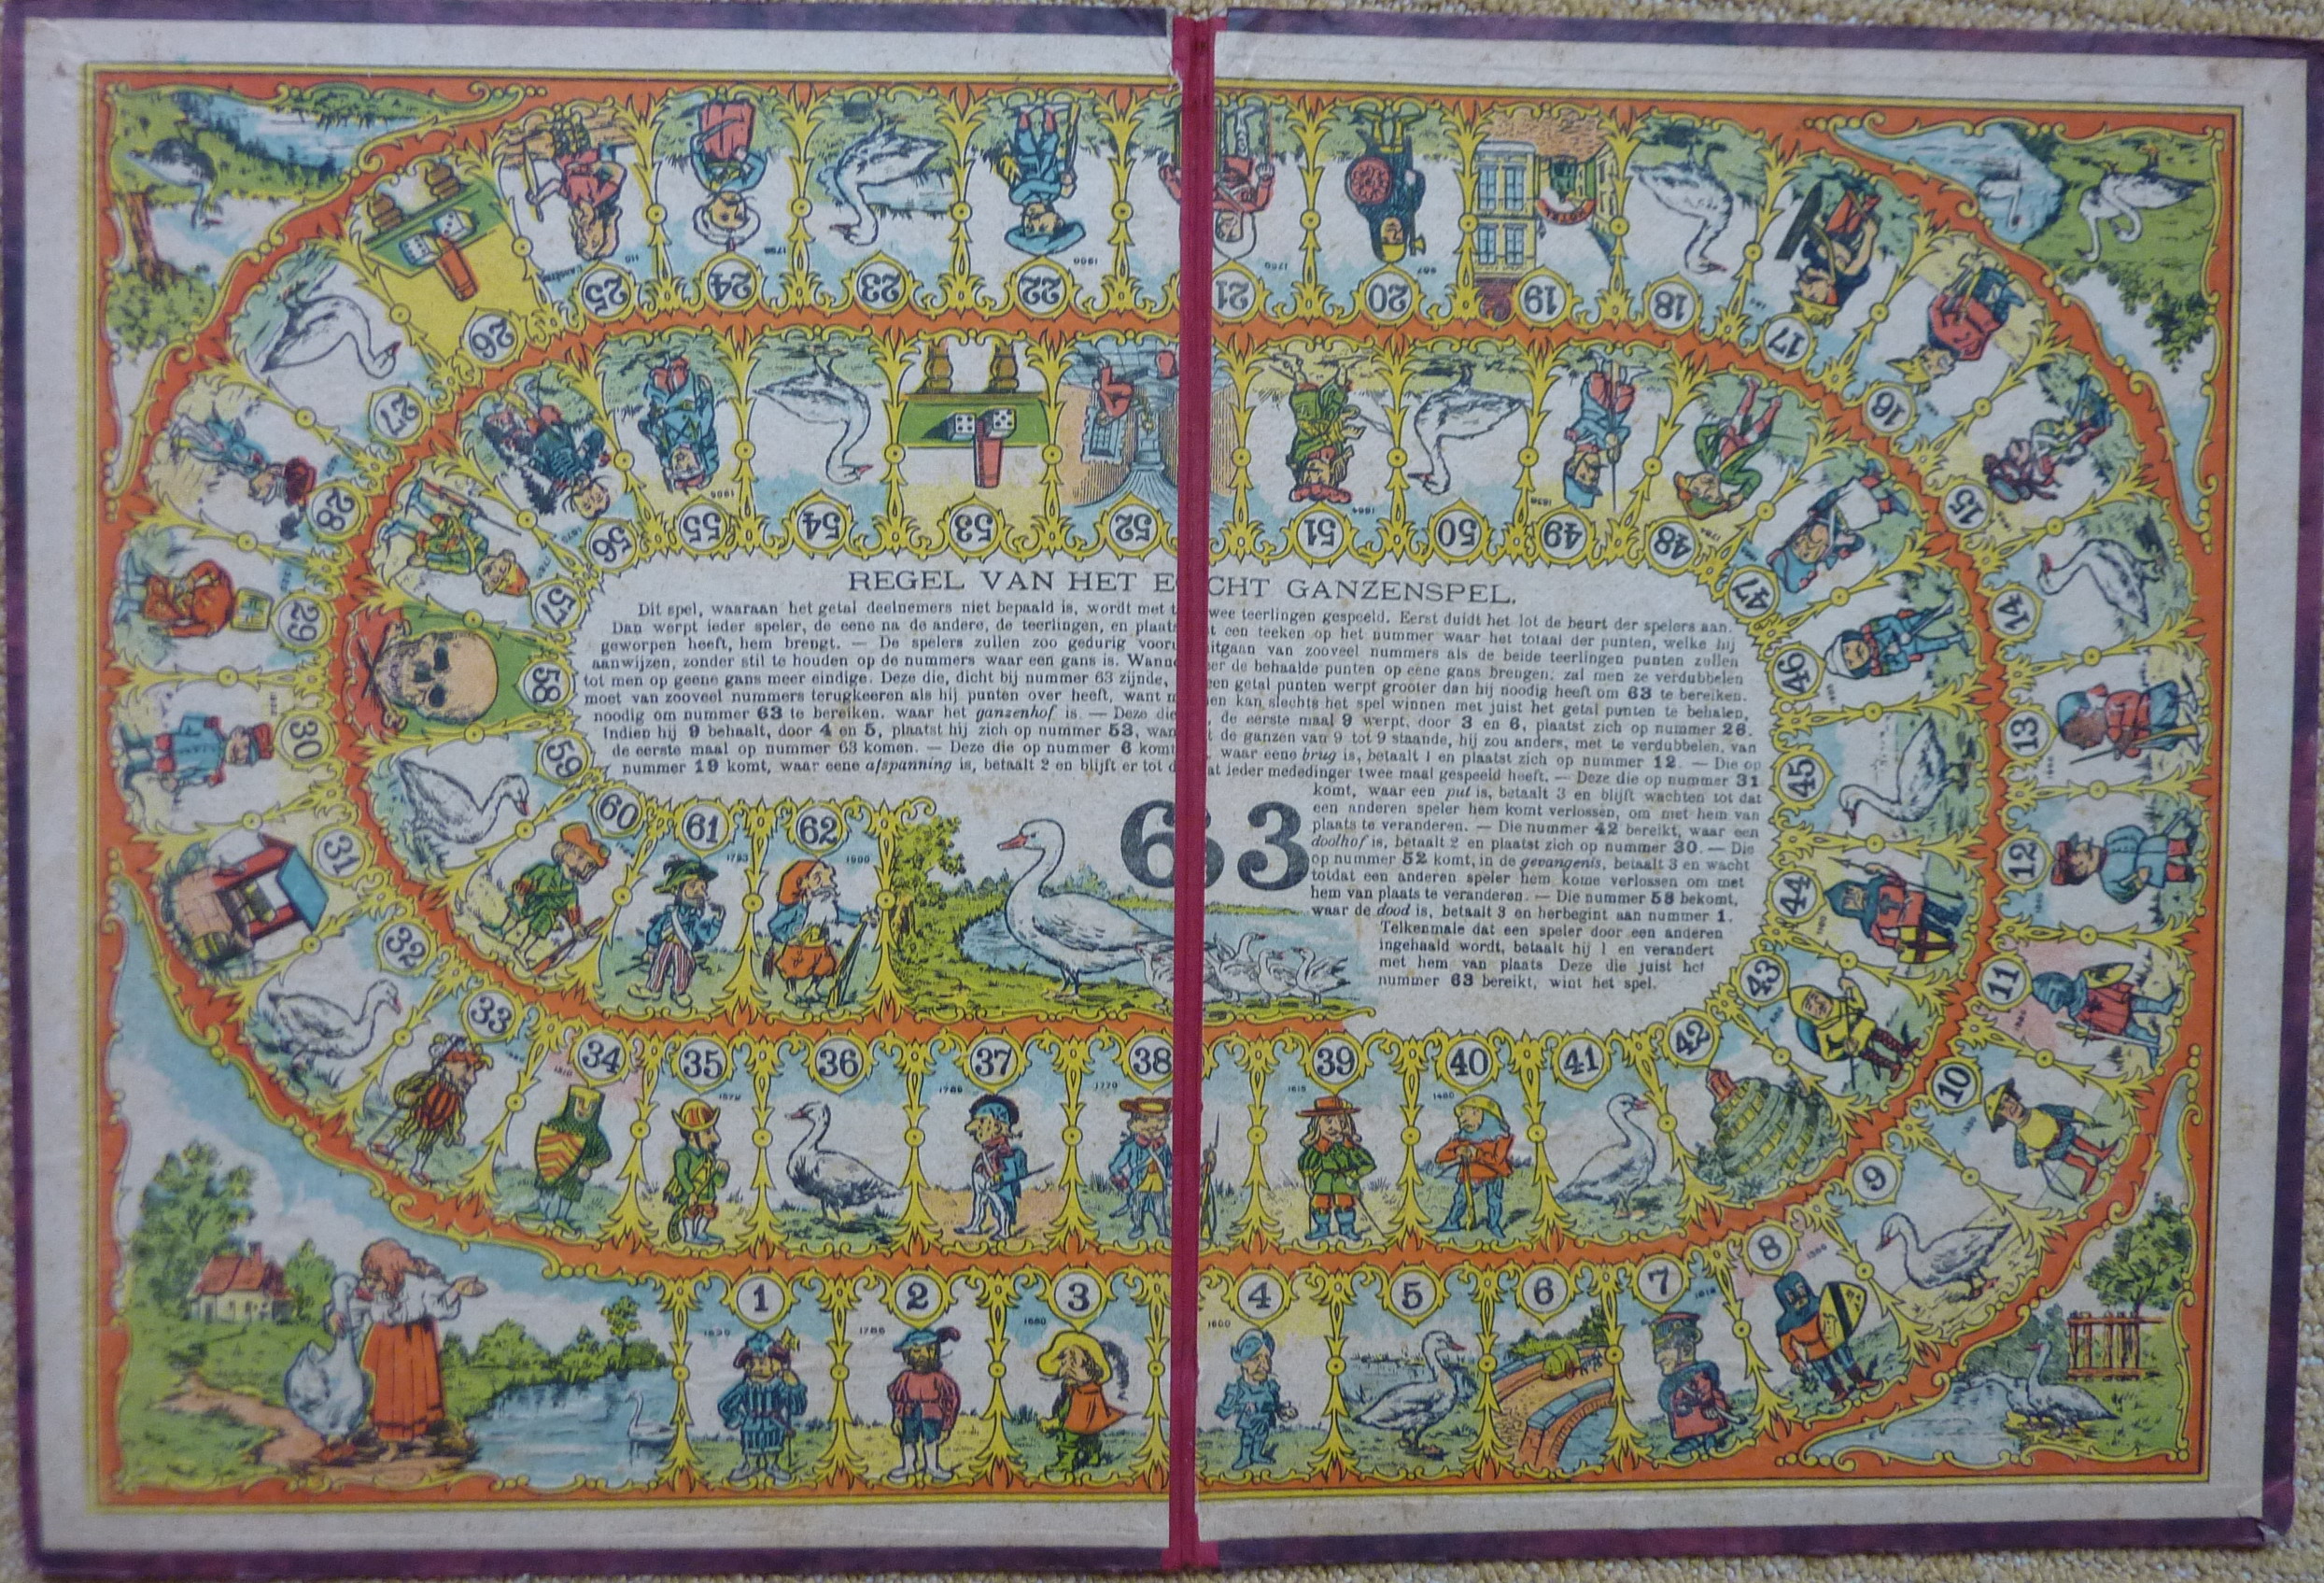 REGEL VAN HET ECHT GANZENSPEL.
Dit spel, waaraan het getal deelnemers niet bepaald is, wordt met twee teerlingen gespeeld. Eerst duidt het lot de beurt der spelers aan.
Dan werpt ieder speler, de eene na de andere, de teerlingen, en plaatst een teeken op het nummer waar het totaal der punten, welke hij
geworpen heeft, hem brengt. — De spelers zullen zoo gedurig vooruitgaan van zooveel nummers als de beide teerlingen punten zullen
aanwijzen, zonder stil te houden op de nummers waar een gans is. Wanneer de behaalde punten op eene gans brengen, zal men ze verdubbelen
tot men op geene gans meer eindige. Deze die, dicht bij nummer 63 zijnde, een getal punten werpt grooter dan hij noodig heeft om 63 te bereiken,
moet van zooveel nummers terugkeeren als hij punten over heeft, want men kan slechts het spel winnen met juist het getal punten te behalen,
noodig om nummer 63 te bereiken, waar het ganzenhof is. — Deze die, de eerste maal 9 werpt, door 3 en 6, plaatst zich op nummer 26.
Indien hij 9 behaalt, door 4 en 5, plaatst hij zich op nummer 53, want de ganzen van 9 tot 9 staande, hij zou anders, met te verdubbelen, van
de eerste maal op nummer 63 komen. — Deze die op nummer 6 komt, waar eene brug is, betaalt 1 en plaatst zich op nummer 12. — Die op
nummer 19 komt, waar eene afspanning is, betaalt 2 en blijft er tot dat ieder mededinger twee maal gespeeld heeft. — Deze die op nummer 31
komt, waar een put is, betaalt 3 en blijft wachten tot dat
een anderen speler hem komt verlossen, om met hem van
plaats te veranderen. — Die nummer 42 bereikt, waar een
doolhof is, betaalt 2 en plaatst zich op nummer 30. — Die
op nummer 52 komt, in de gevangenis, betaalt 3 en wacht
totdat een anderen speler hem kome verlossen om met
hem van plaats te veranderen. — Die nummer 58 bekomt,
waar de dood is, betaalt 3 en herbegint aan nummer 1.
Telkenmale dat een speler door een anderen
ingehaald wordt, betaalt hij 1 en verandert
met hem van plaats Deze die juist het
nummer 63 bereikt, wint het spel.
63
1
2
3
4
5
6
7
8
9
10
11
12
13
14
15
16
17
18
19
HOTEL
20
21
22
23
24
25
26
27
28
29
30
31
32
33
34
35
36
37
38
39
40
41
42
43
44
45
46
47
48
49
50
51
52
53
54
55
56
57
58
59
60
61
62